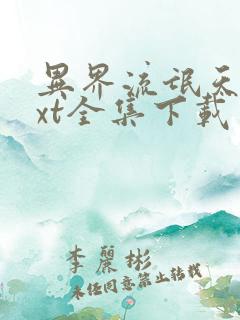 異界流氓天
xt全集下載
李麗彬
未经同意禁止转载